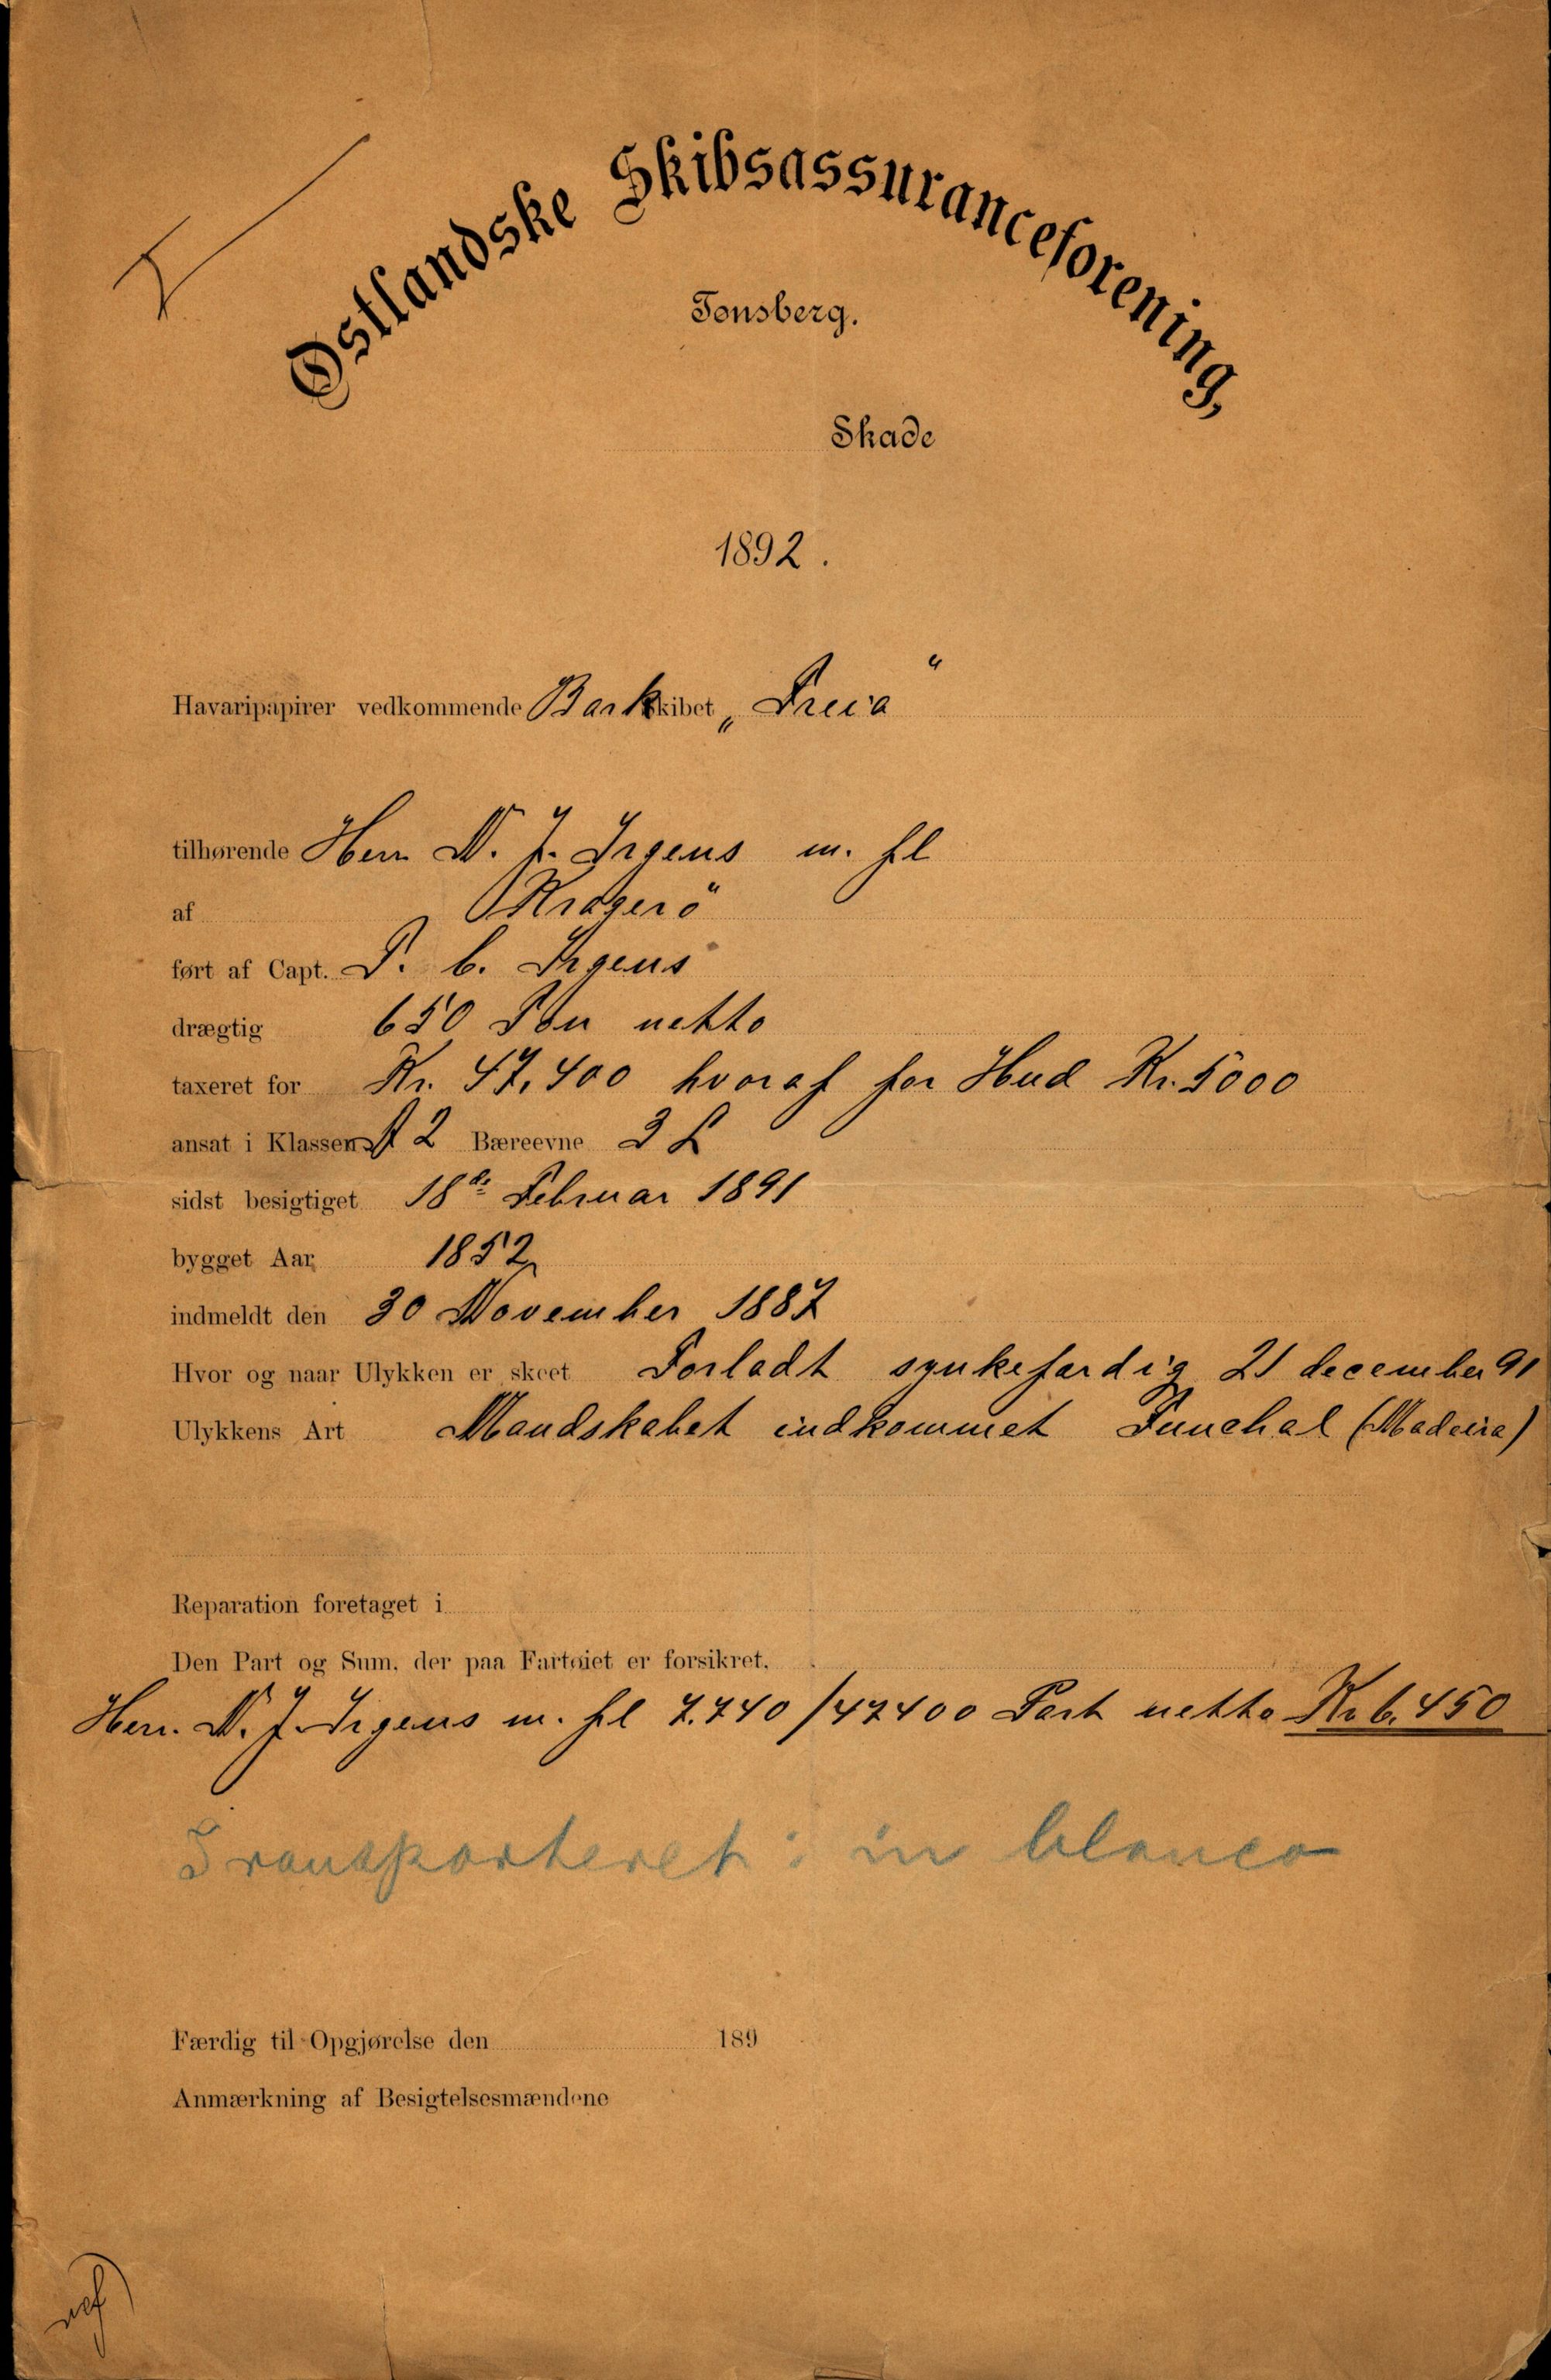 Østlandske Skibsassuranceforening,
Tønsberg.
Skade
1892.
Havaripapirer vedkommende Bark skibet „Freia“
tilhørende Herr N. J. Irgens m. fl
af Kragerö
ført af Capt. P. C. Irgens
drægtig 650 Ton netto
taxeret for Kr. 47,400 hvoraf for Hud Kr. 5000
ansat i Klassen A 2 Bæreevne 3 L
sidst besigtiget 18de Februar 1891
bygget Aar 1852
indmeldt den 30 November 1887
Hvor og naar Ulykken er skeet Forladt synkefærdig 21 december 91
Ulykkens Art Mandskabet indkommet Funchal (Madeira)
Reparation foretaget i
Den Part og Sum, der paa Fartøiet er forsikret.
Herr. N. J. Irgens m. fl 7.740/47400 Part netto Kr 6.450
Transporteret: in blanco
Færdig til Opgjørelse den 189
Anmærkning af Besigtelsesmændene